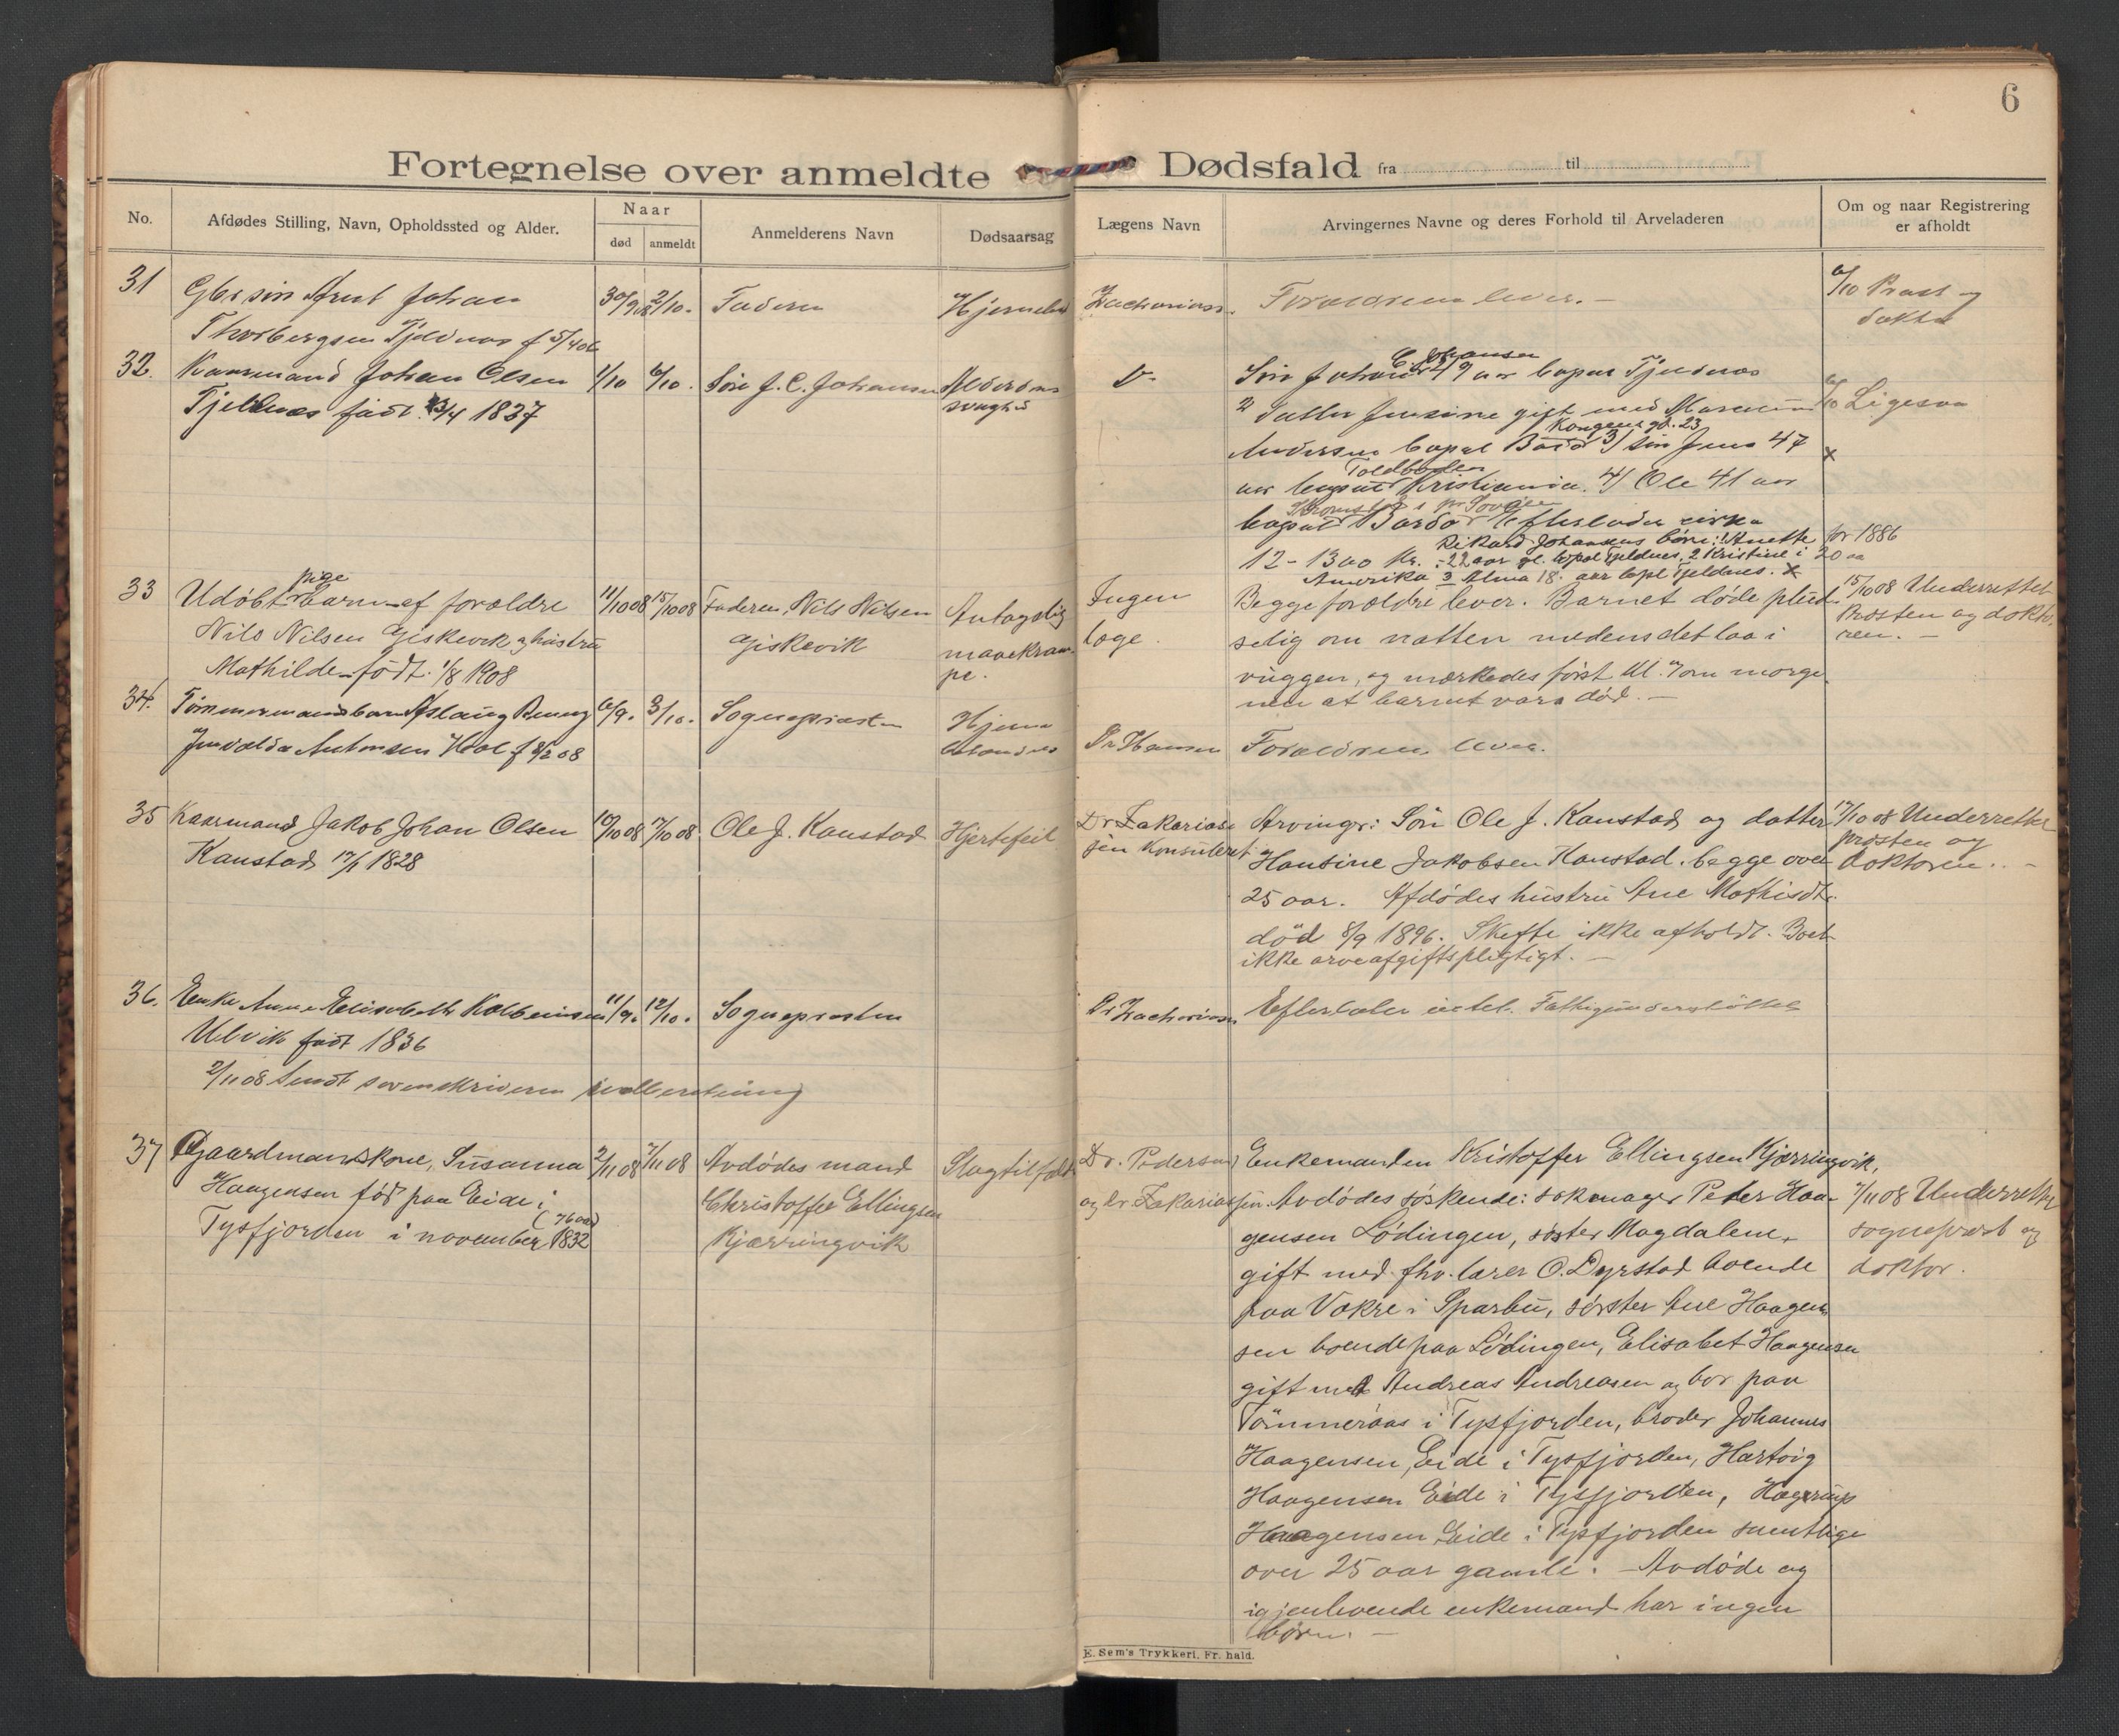 6
Fortegnelse over anmeldte Dødsfald fra til
No.
Afdødes Stilling, Navn, Opholdssted og Alder.
Naar
død
anmeldt
Anmelderens Navn
Dødsaarsag
Lægens Navn
Arvingernes Navne og deres Forhold til Arveladeren
Om og naar Registrering
er afholdt
31
Johan
Thorbergsen Tjeldnes f 5/4 06
30/9 08
2/10.
Faderen
Zachariass.
Forældrene lever. —
6/10 Præst og
doktor
32.
Kaarmand Johan Olsen
Tjeldnes født 1837
1/10
6/10.
Søn J. C. Johansen
Alderdoms
svaghed
Johansen
49 aar bopæl Tjeldnes
2 datter Jensine gift med
Kongens gd. 23
Andersen bopæl Bodø 3) søn Jens 47
Toldboden
aar bopæl Kristiania. 4) Ole 41 aar
bopæl Efterlader cirka
Rikard Johansens børn: 1 Anette før 1886
12-1300 Kr. 22 aar gl. bopæl Tjeldnes, 2 Kristine i 20 aa
Amerika 3 Alma 18 aar bopl Tjeldnes. x
6/10 Ligesaa
x
33
pige
Udøbt barn af forældre
Nils Nilsen Giskevik og hustru
Mathilde født 1/8 1908
11/10 08
15/10 08
Faderen, Nils Nilsen
Giskevik
Antagelig
mavekram-
pe.
Ingen
læge.
Begge forældre lever. Barnet døde plud-
selig om natten medens det laa i
vuggen, og mærkedes først kl. 7 om morge-
nen at barnet vara død. —
15/10 08 Underrettet
Presten og dokto-
ren. —
34.
Tømmermandsbarn Aslaug
Antonsen Hol f 8/2 08
6/9.
3/10.
Sognepræsten
Hjerne
Dr Hansen
Forældrene lever.
35
Kaarmand Jakob Johan Olsen
Kanstad 17/1 1828
10/10 08
17/10 08
Ole J. Kanstad
Hjertefeil
Dr Zakarias-
sen Konsuleret
Arvinger: Søn Ole J. Kanstad og datter
Hansine Jakobsen Kanstad. begge over
25 aar. Afdødes hustru Ane Mathisdtr.
død 8/9 1896. Skifte ikke afholdt. Boet
ikke arveafgiftspligtigt. —
17/10 08 Underrettet
presten og
doktoren. —
36.
Enke Anne Elisabeth Kolbeinsen
Ulvik født 1836
2/11 08 Sendt sorenskriveren indberetning
11/9.
12/10.
Sognepræsten
Dr Zachariassen
Efterlader intet. Fattigunderstøttet
37
Gaardmandskone, Susanna
Haagensen fød paa Eide i
(76 aar)
Tysfjorden i november 1832
2/11 08
7/11 08
Avdødes mand
Christoffer Ellingsen
Kjærringvik
Slagtilfælde
Dr. Pedersen
og Dr Zakariassen.
Enkemanden Kristoffer Ellingsen Kjærringvik,
Avdødes søskende: sakmager Peter Haa-
gensen Lødingen, søster Magdalene,
gift med fhv. lærer O. Dyrstad boende
paa Vakre i Sparbu, sørster Ane Haagen-
sen boende paa Lødingen, Elisabet Haagensen
gift med Andreas Andreasen og bor paa
Tømmeraas i Tysfjorden, broder Johannes
Haagensen, Eide i Tysfjorden, Hartvig
Haagensen Eide i Tysfjorden, Hagerup
Haagensen Eide i Tysfjorden samtlige
over 25 aar gamle. — Avdøde og
igjenlevende enkemand har ingen
børn. —
7/11 08 Underrettet
sogneprest og
doktor.
E. Sem's Trykkeri, Fr. hald.